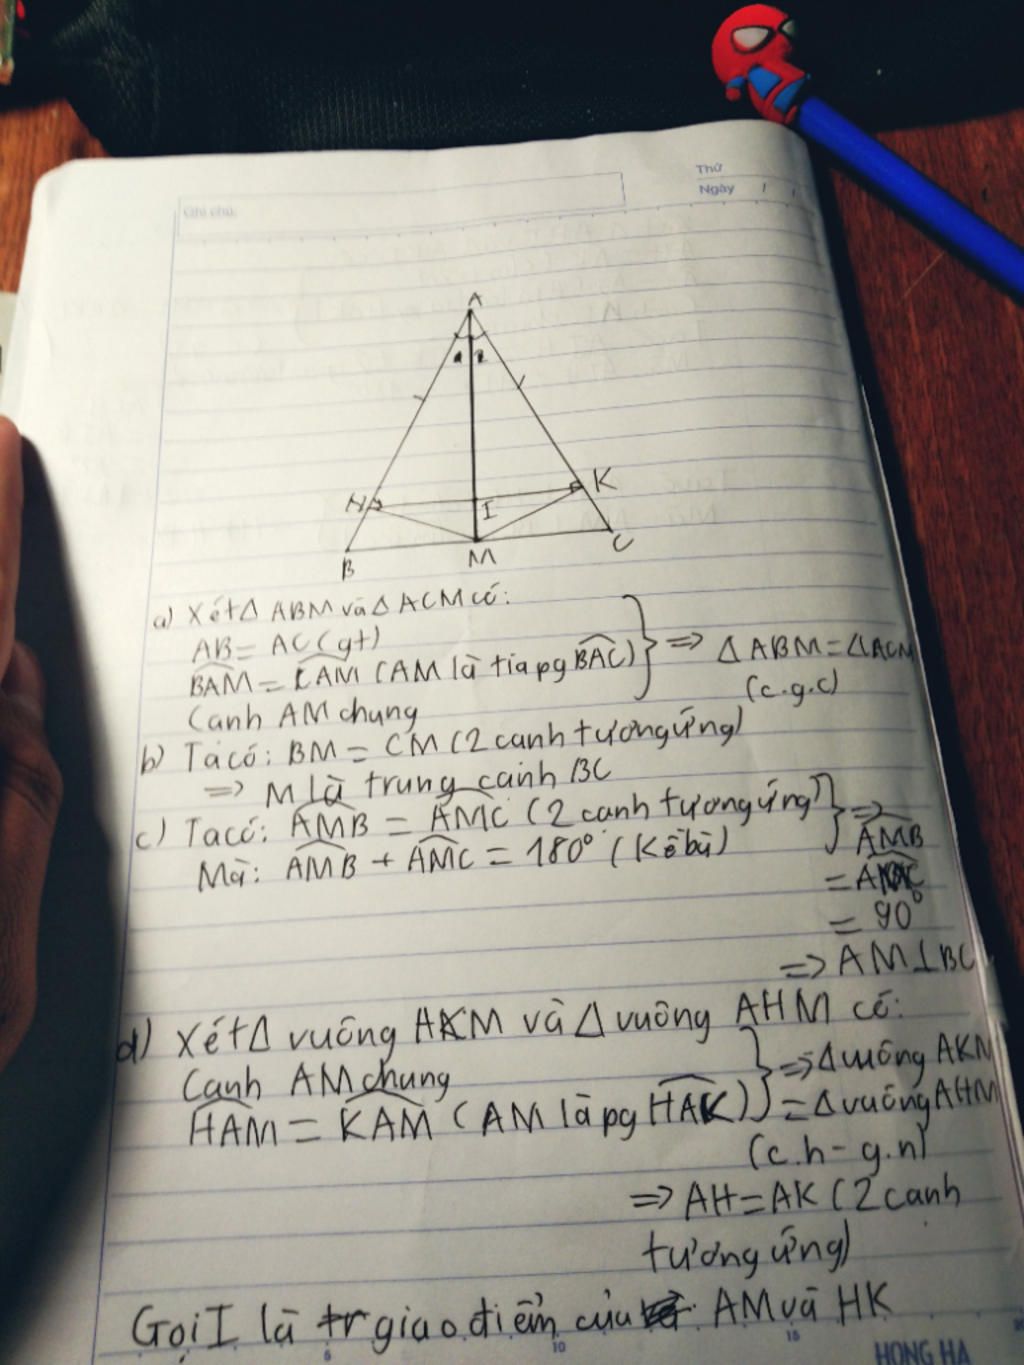 Thứ
Ngày / /
Ghi chú:
A
1 2
H
K
I
B
M
C
a) Xét Δ ABM và Δ ACM có:
AB = AC (gt)
BAM = CAM (AM là tia pg BAC)
Cạnh AM chung
=> Δ ABM = Δ ACM
(c.g.c)
b) Ta có: BM = CM (2 cạnh tương ứng)
=> M là trung cạnh BC
c) Ta có: AMB = AMC (2 cạnh tương ứng)
Mà: AMB + AMC = 180° (Kề bù)
=> AMB
= AMC
= 90°
=> AM ⊥ BC
d) Xét Δ vuông AKM và Δ vuông AHM có:
Cạnh AM chung
HAM = KAM (AM là pg HAK)
=> Δ vuông AKM
= Δ vuông AHM
(c.h - g.n)
=> AH = AK (2 cạnh
tương ứng)
Gọi I là giao điểm của AM và HK
5 10 15
HONG HA